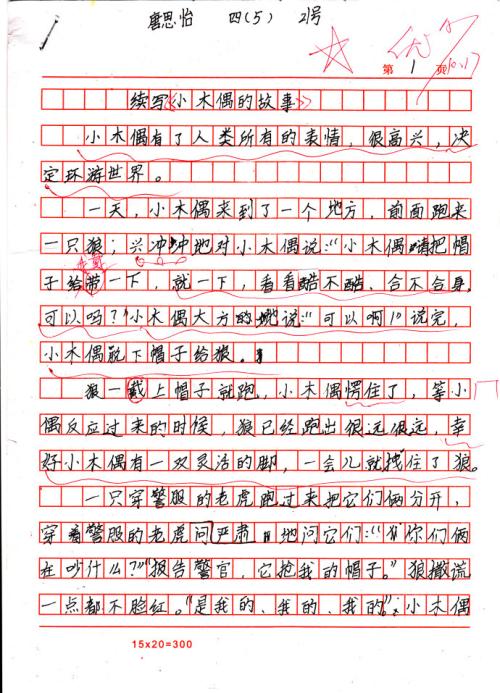 唐思怡 四(5) 21号
优
第 1 页 10.17
续写《小木偶的故事》
小木偶有了人类所有的表情，很高兴，决
定环游世界。
一天，小木偶来到了一个地方，前面跑来
一只狼，兴冲冲地对小木偶说：“小木偶请把帽
子给带一下，就一下，看看酷不酷、合不合身，
可以吗？”小木偶大方的说：“可以啊！”说完，
小木偶脱下帽子给狼。
狼一戴上帽子就跑，小木偶愣住了，等小
偶反应过来的时候，狼已经跑出很远很远，幸
好小木偶有一双灵活的脚，一会儿就找住了狼。
一只穿警服的老虎跑过来把它们俩分开，
穿着警服的老虎严肃地问它们：“你们俩
在吵什么？”“报告警官，它抢我的帽子。”狼撒谎
一点都不脸红。“是我的、我的、我的”小木偶
15x20=300